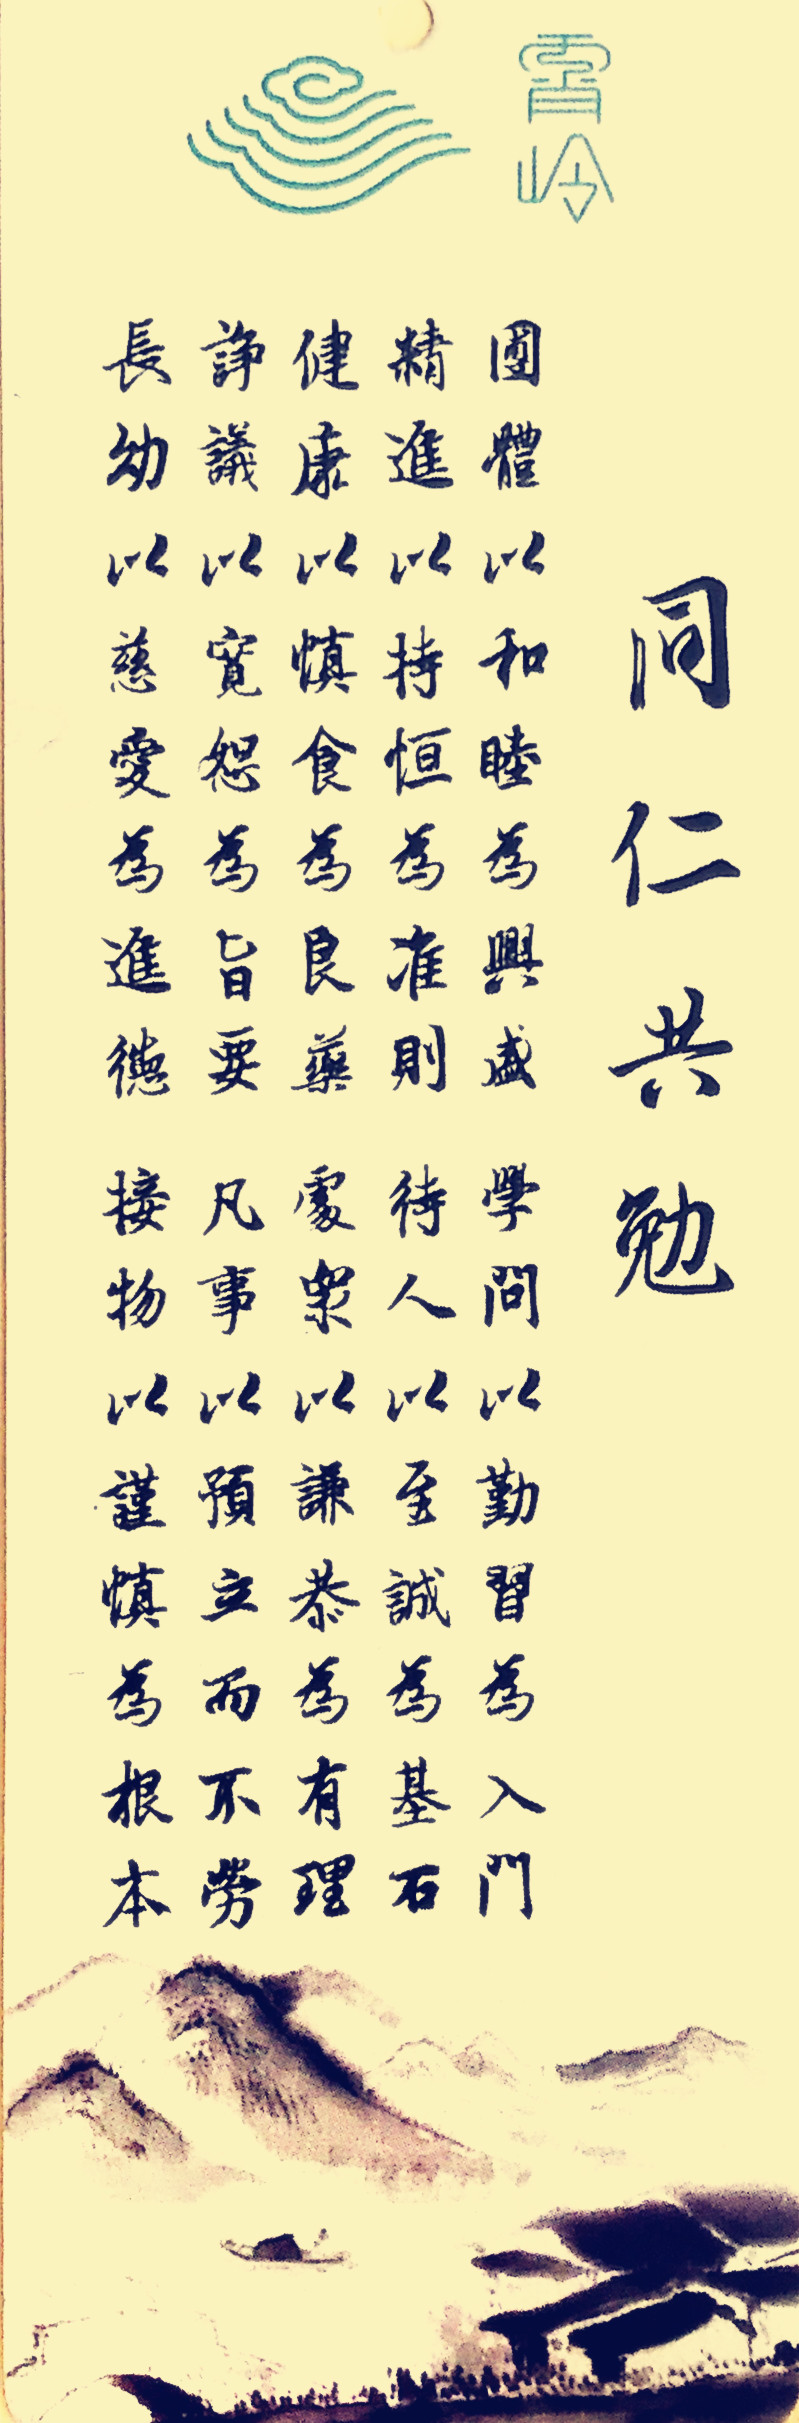 霄岭
同仁共勉
團體以和睦為興盛 學問以勤習為入門
精進以持恒為准則 待人以至誠為基石
健康以慎食為良藥 處眾以謙恭為有理
諍議以寬恕為旨要 凡事以預立而不勞
長幼以慈愛為進德 接物以謹慎為根本